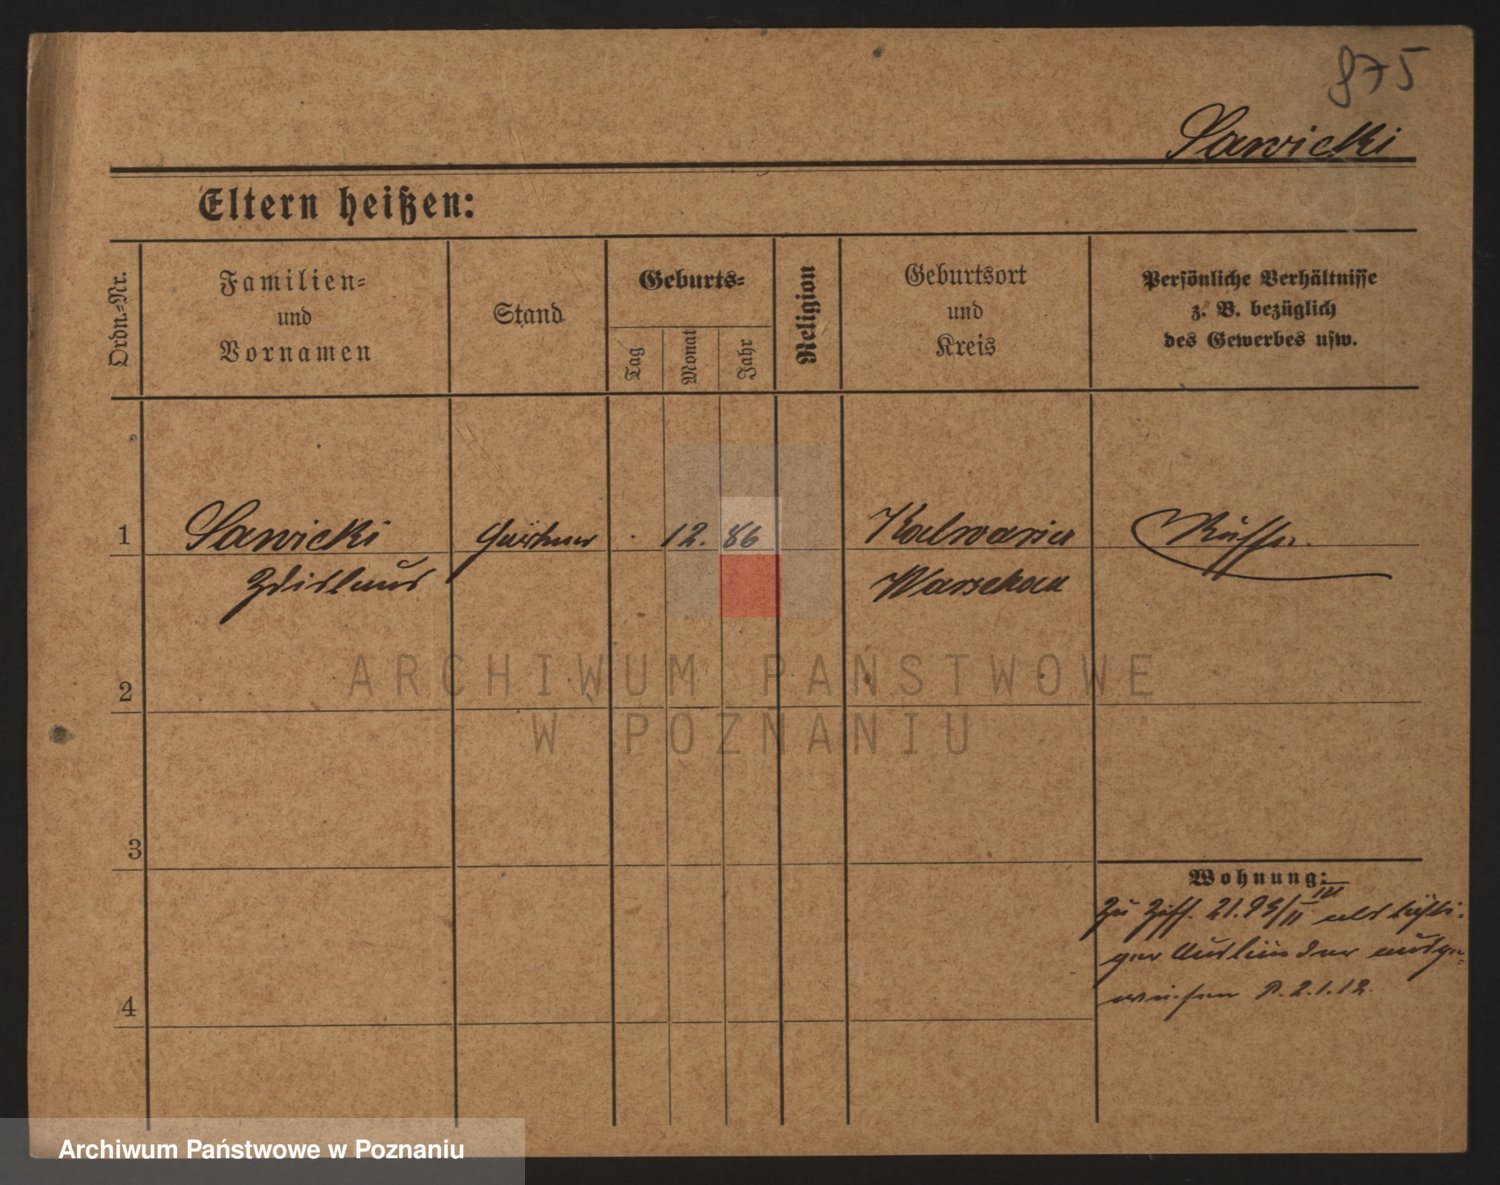 875
Sawicki
Eltern heißen:
Ordn.-Nr.
Familien-
und
Vornamen
Stand
Geburts-
Tag
Monat
Jahr
Religion
Geburtsort
und
Kreis
Persönliche Verhältnisse
z. B. bezüglich
des Gewerbes usw.
1
Sawicki
Zdislaus
Gärtner
. 12. 86
Kalwaria
Warschau
Russe.
2
3
4
Wohnung:
Zu Ziff. 21.93/II als lästi-
ger Ausländer ausge-
wiesen P. 2.1.12.
ARCHIWUM PAŃSTWOWE
W POZNANIU
Archiwum Państwowe w Poznaniu